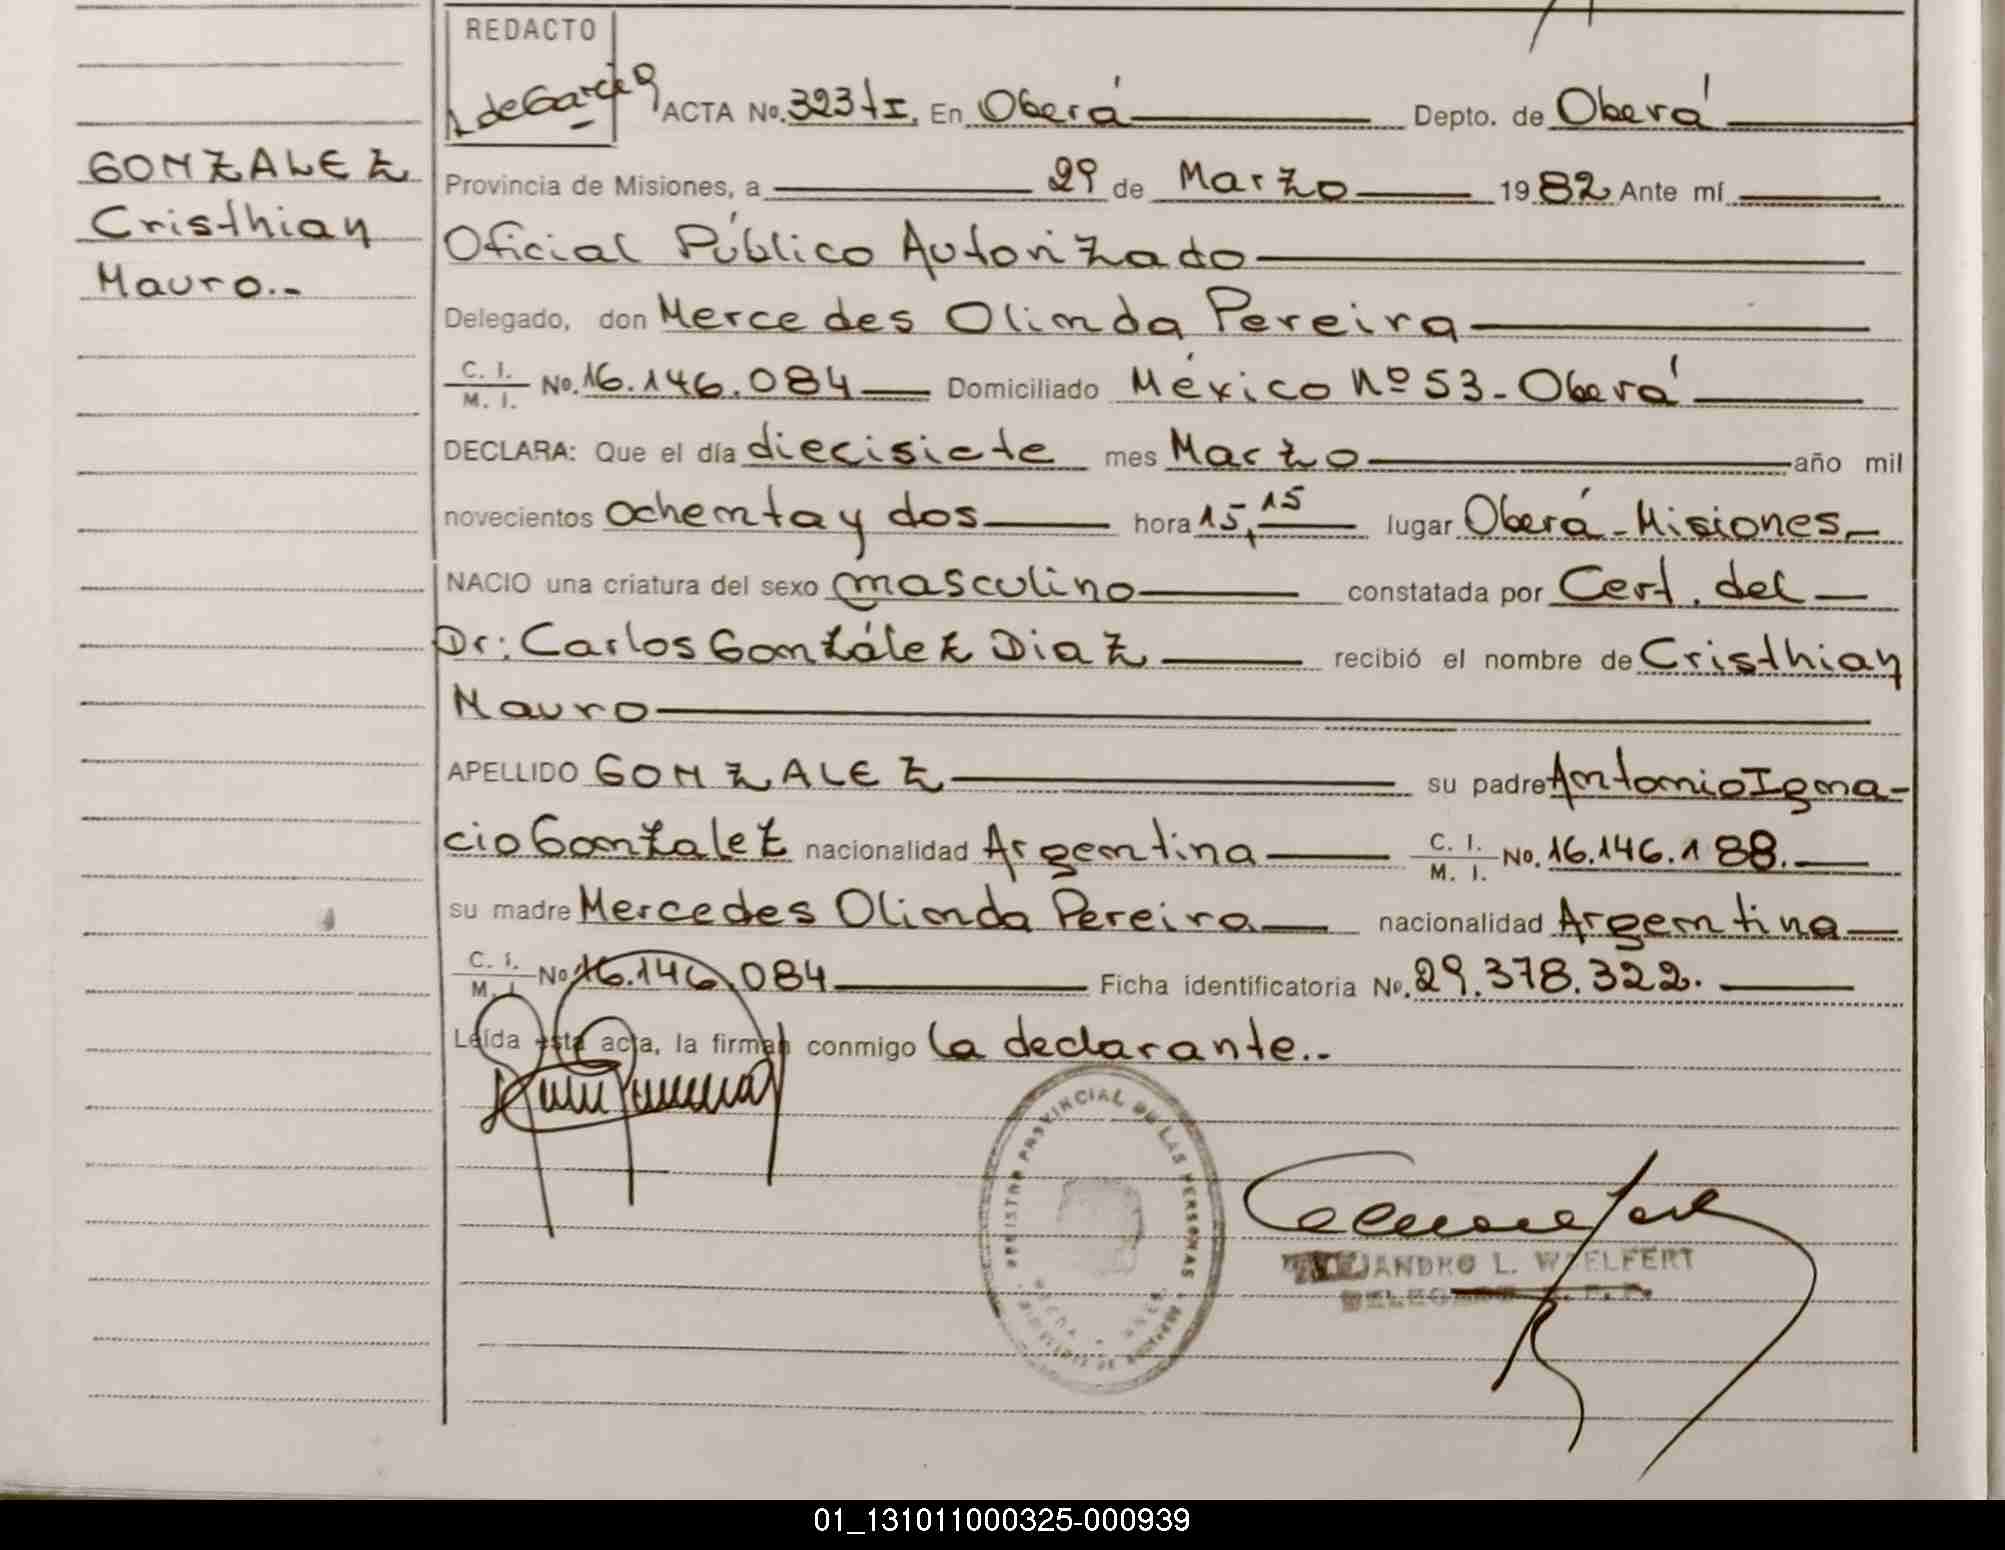 REDACTO
L de Garcia ACTA No. 323 tI. En Oberá Depto. de Oberá
GONZALEZ
Cristhian
Mauro.-
Provincia de Misiones, a 29 de Marzo 1982 Ante mí
Oficial Público Autorizado
Delegado, don Mercedes Olinda Pereira
C. I. / M. I. No. 16.146.084 Domiciliado México Nº 53 - Oberá
DECLARA: Que el día diecisiete mes Marzo año mil
novecientos ochenta y dos hora 15,15 lugar Oberá - Misiones
NACIO una criatura del sexo masculino constatada por Cert. del
Dr: Carlos González Diaz recibió el nombre de Cristhian
Mauro
APELLIDO GONZALEZ su padre Antonio Igna-
cio Gonzalez nacionalidad Argentina C. I. / M. I. No. 16.146.188.
su madre Mercedes Olinda Pereira nacionalidad Argentina
C. I. / M. I. No. 16.146.084 Ficha identificatoria No. 29.378.322.
Leída esta acta, la firman conmigo la declarante..
REGISTRO PROVINCIAL DE LAS PERSONAS
ALEJANDRO L. WOELFERT
DELEGADO R. P. P.
01_131011000325-000939